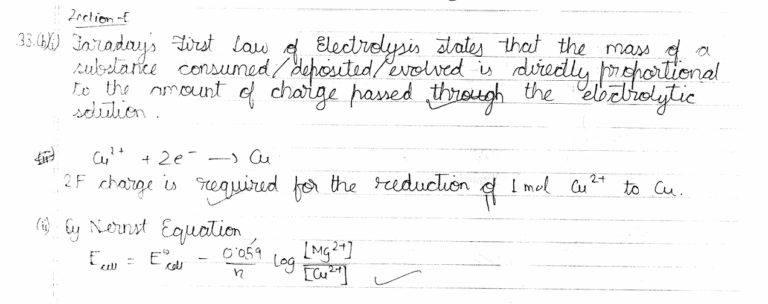 Section-E
33.(b)(i) Faraday's First Law of Electrolysis states that the mass of a
substance consumed/deposited/evolved is directly proportional
to the amount of charge passed through the electrolytic
solution.
Cu²⁺ + 2e⁻ → Cu
2F charge is required for the reduction of 1 mol Cu²⁺ to Cu.
(ii) By Nernst Equation,
E cell = E° cell - 0.059/n log [Mg²⁺]/[Cu²⁺]